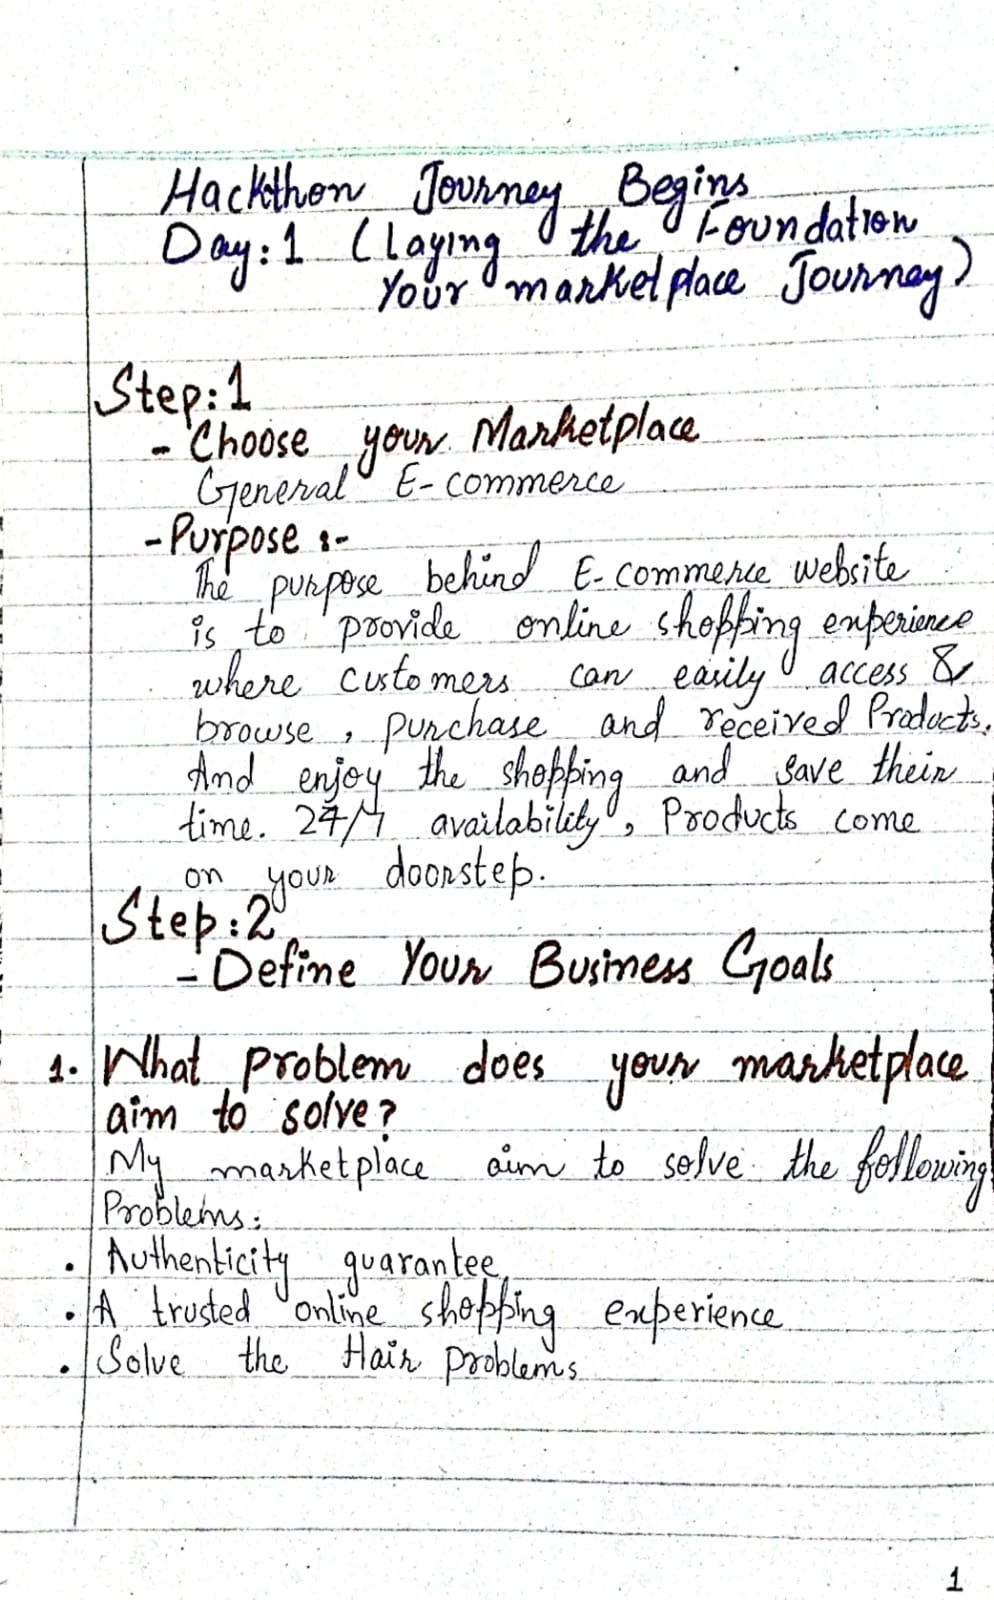 Hackthon Journey Begins
Day:1 (laying the Foundation
Your marketplace Journey)
Step:1
- Choose your Marketplace
General E-commerce
- Purpose :-
The purpose behind E-commerce website
is to provide online shopping experience
where customers can easily access &
browse , purchase and received Products.
And enjoy the shopping and save their
time. 24/7 availability, Products come
on your doorstep.
Step:2
- Define Your Business Goals
1. What problem does your marketplace
aim to solve?
My marketplace aim to solve the following
Problems:
• Authenticity guarantee
• A trusted online shopping experience
• Solve the Hair problems
1